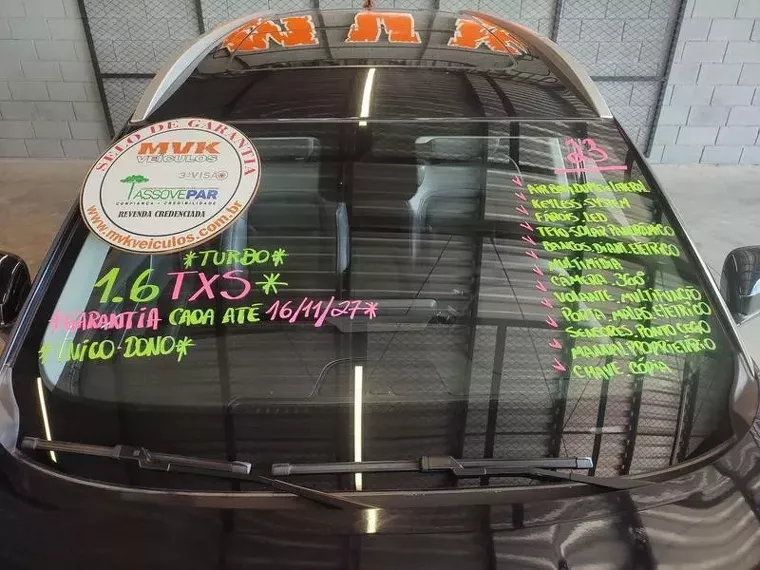 MVK
SELO DE GARANTIA
MVK
VEÍCULOS
3ª VISÃO
ASSOVEPAR
CONFIANÇA • CREDIBILIDADE
REVENDA CREDENCIADA
www.mvkveiculos.com.br
*TURBO*
1.6 TXS*
*GARANTIA CAOA ATÉ 16/11/27*
*ÚNICO-DONO*
23
AIR BAG DUPLO + LATERAL
KEYLESS SYSTEM
FARÓIS LED
TETO SOLAR PANORÂMICO
BANCOS DIANT. ELÉTRICO
MULTIMÍDIA
CÂMERA 360°
VOLANTE MULTIFUNÇÃO
PORTA MALAS ELÉTRICO
SENSORES PONTO CEGO
MANUAL PROPRIETÁRIO
CHAVE CÓPIA